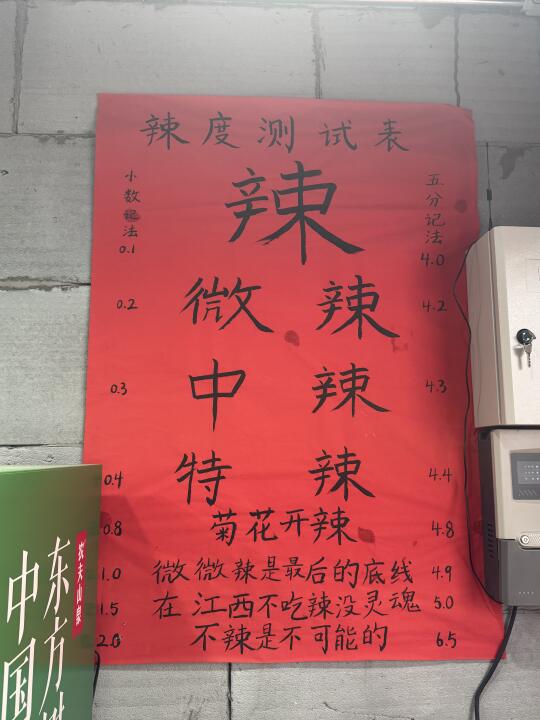 辣度测试表
小数记法 五分记法
辣
0.1 4.0
0.2 微辣 4.2
0.3 中辣 4.3
0.4 特辣 4.4
0.8 菊花开辣 4.8
1.0 微微辣是最后的底线 4.9
1.5 在江西不吃辣没灵魂 5.0
2.0 不辣是不可能的 6.5
农夫山泉
东方
中国